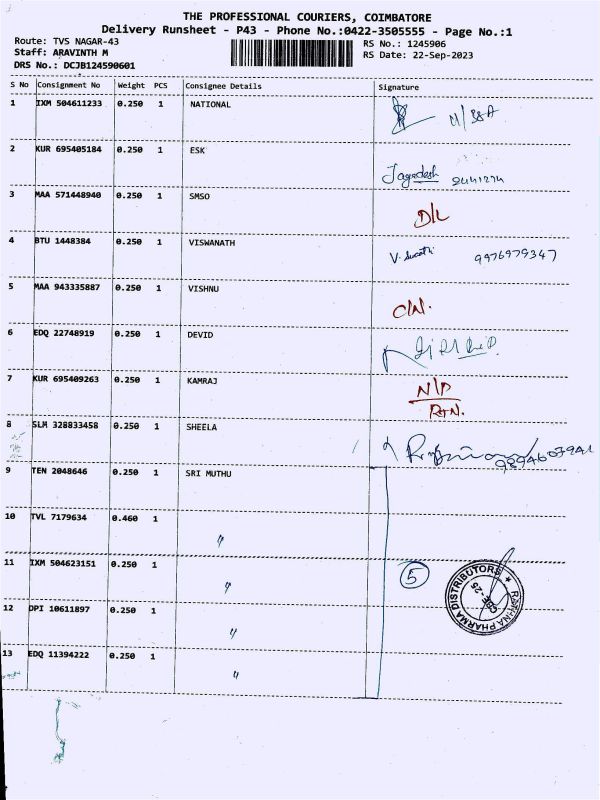 THE PROFESSIONAL COURIERS, COIMBATORE
Delivery Runsheet - P43 - Phone No.:0422-3505555 - Page No.:1
Route: TVS NAGAR-43 RS No.: 1245906
Staff: ARAVINTH M RS Date: 22-Sep-2023
DRS No.: DCJB124590601
S No Consignment No Weight PCS Consignee Details Signature
1 IXM 504611233 0.250 1 NATIONAL
2 KUR 695405184 0.250 1 ESK
Jagadesh
3 MAA 571448940 0.250 1 SMSO
D/L
4 BTU 1448384 0.250 1 VISWANATH
9976979347
5 MAA 943335887 0.250 1 VISHNU
C/N.
6 EDQ 22748919 0.250 1 DEVID
7 KUR 695409263 0.250 1 KAMRAJ
N/P
RTN.
8 SLM 328833458 0.250 1 SHEELA
9894607941
9 TEN 2048646 0.250 1 SRI MUTHU
10 TVL 7179634 0.460 1 "
11 IXM 504623151 0.250 1 " 5
PHARMA DISTRIBUTORS
CBE-25
12 DPI 10611897 0.250 1 "
13 EDQ 11394222 0.250 1 "